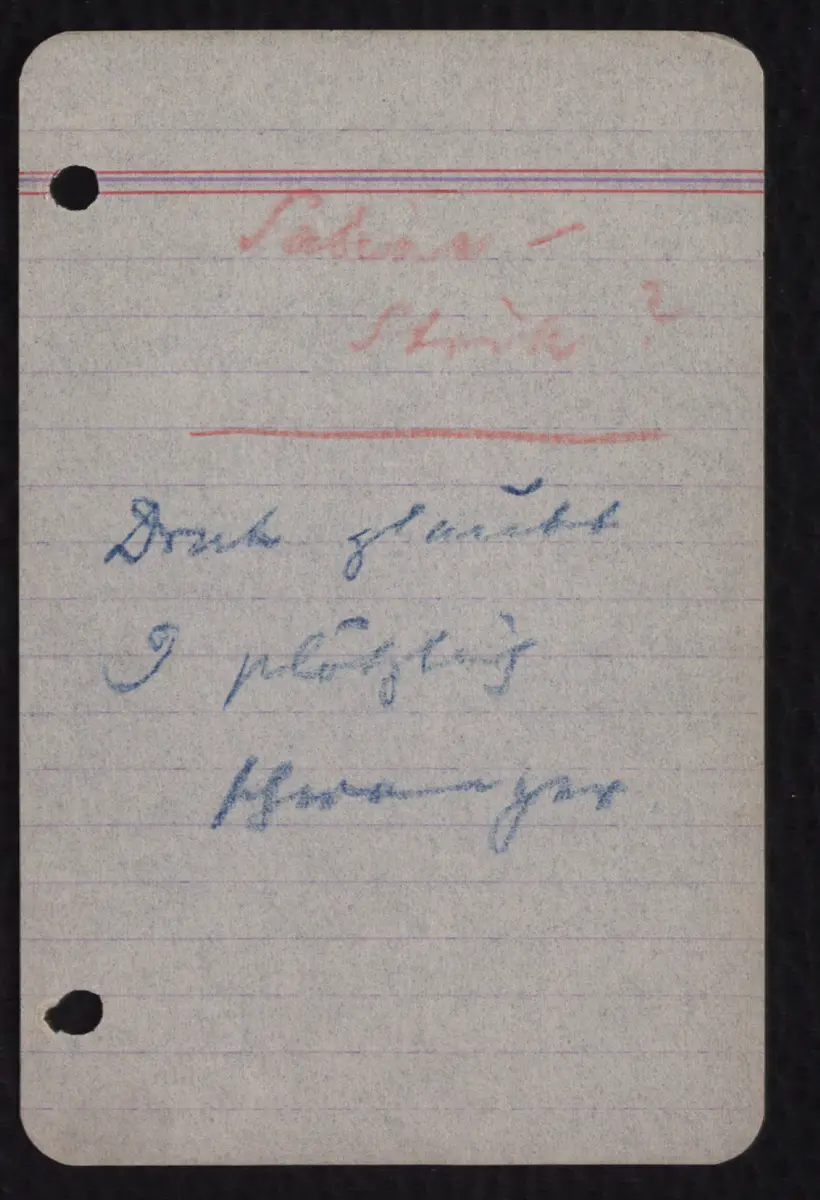 Sabine –
Stück ?
Druck glaubt
I plötzlich
schwanger